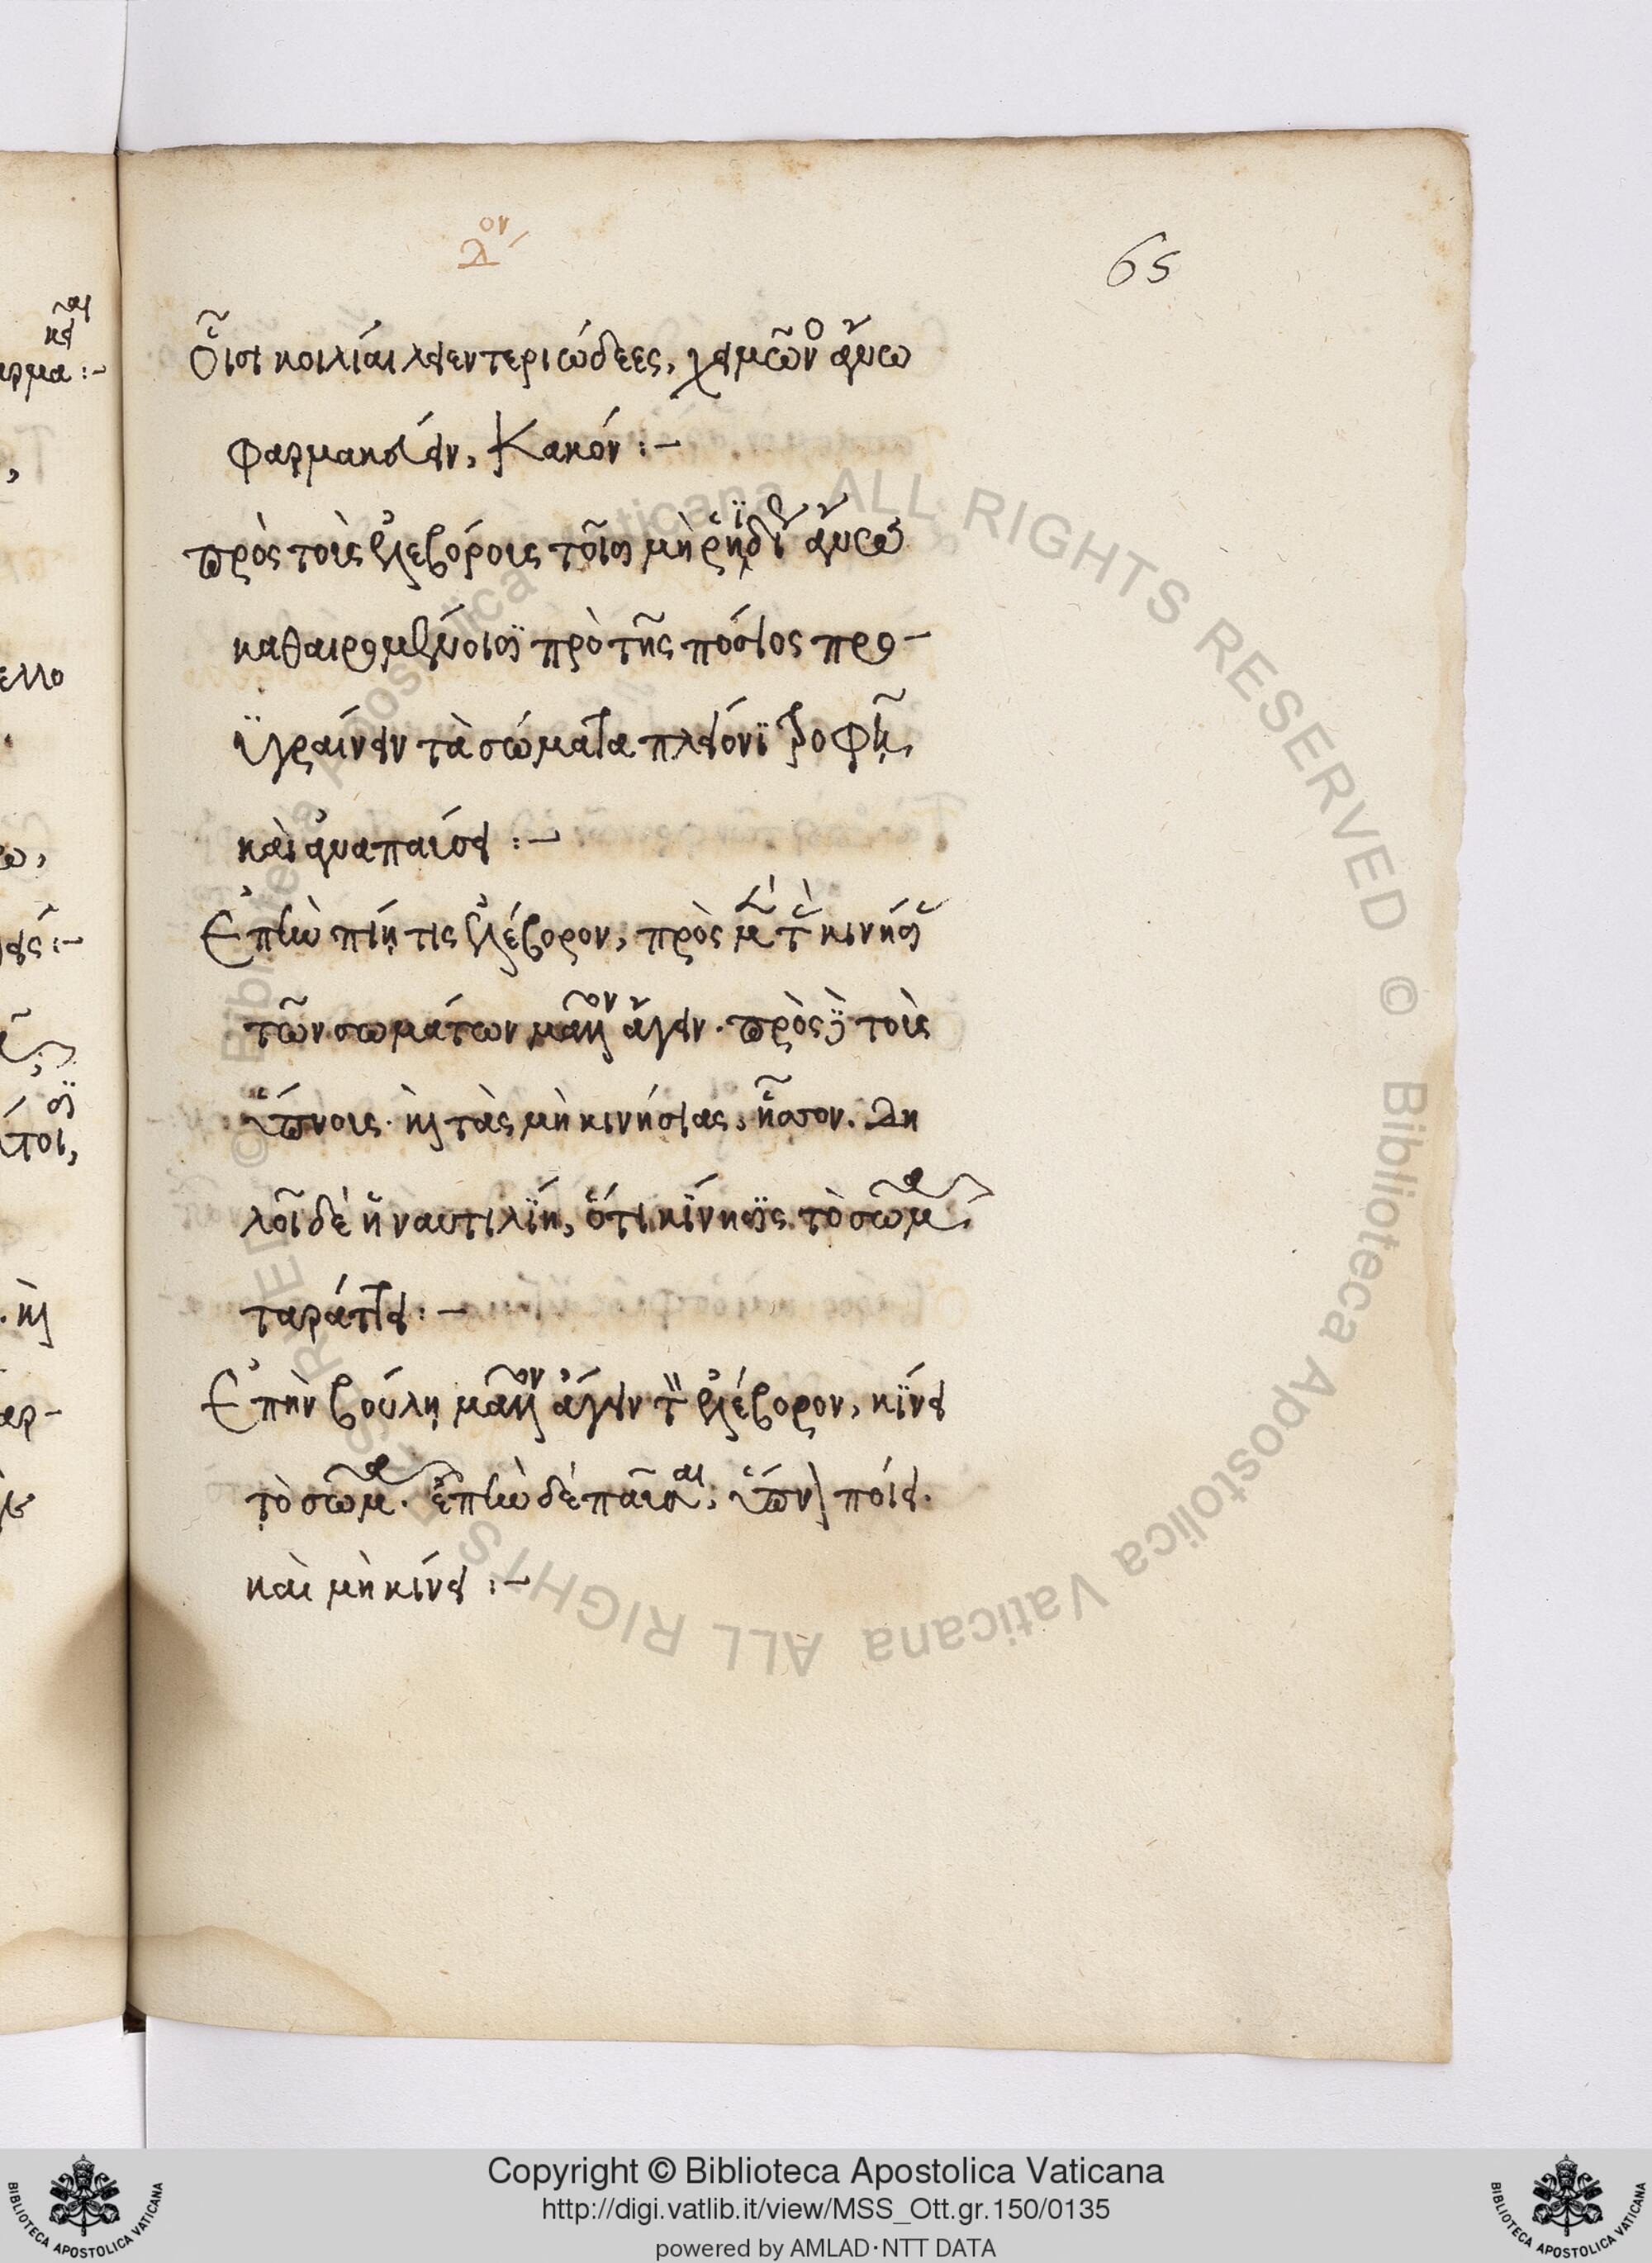 65
Οἷσι κοιλίαι λειεντεριώδεες, χειμῶνος ἄνω
φαρμακεύειν, κακόν :–
πρὸς τοὺς ἐλλεβόρους τοῖσι μὴ ῥηϊδίως ἄνω
καθαιρομένοισι πρὸ τῆς πόσιος προ–
ϋγραίνειν τὰ σώματα πλείονι τροφῇ,
καὶ ἀναπαύσει :–
Ἐπὴν πίῃ τις ἐλλέβορον, πρὸς μὲν τὰς κινήσιας
τῶν σωμάτων μᾶλλον ἄγειν. πρὸς δὲ τοὺς
ὕπνους. καὶ τὰς μὴ κινήσιας, ἧσσον. Δη
λοῖ δὲ ἡ ναυτιλίη, ὅτι κίνησις τὸ σῶμα
ταράττει :–
Ἐπὴν βούλῃ μᾶλλον ἄγειν τὸν ἐλλέβορον, κίνει
τὸ σῶμα. ἐπὴν δὲ παῦσαι, ὕπνον ποίει.
καὶ μὴ κίνει :–
Copyright © Biblioteca Apostolica Vaticana
http://digi.vatlib.it/view/MSS_Ott.gr.150/0135
powered by AMLAD·NTT DATA
BIBLIOTECA APOSTOLICA VATICANA
BIBLIOTECA APOSTOLICA VATICANA
© Biblioteca Apostolica Vaticana ALL RIGHTS RESERVED
© Biblioteca Apostolica Vaticana ALL RIGHTS RESERVED